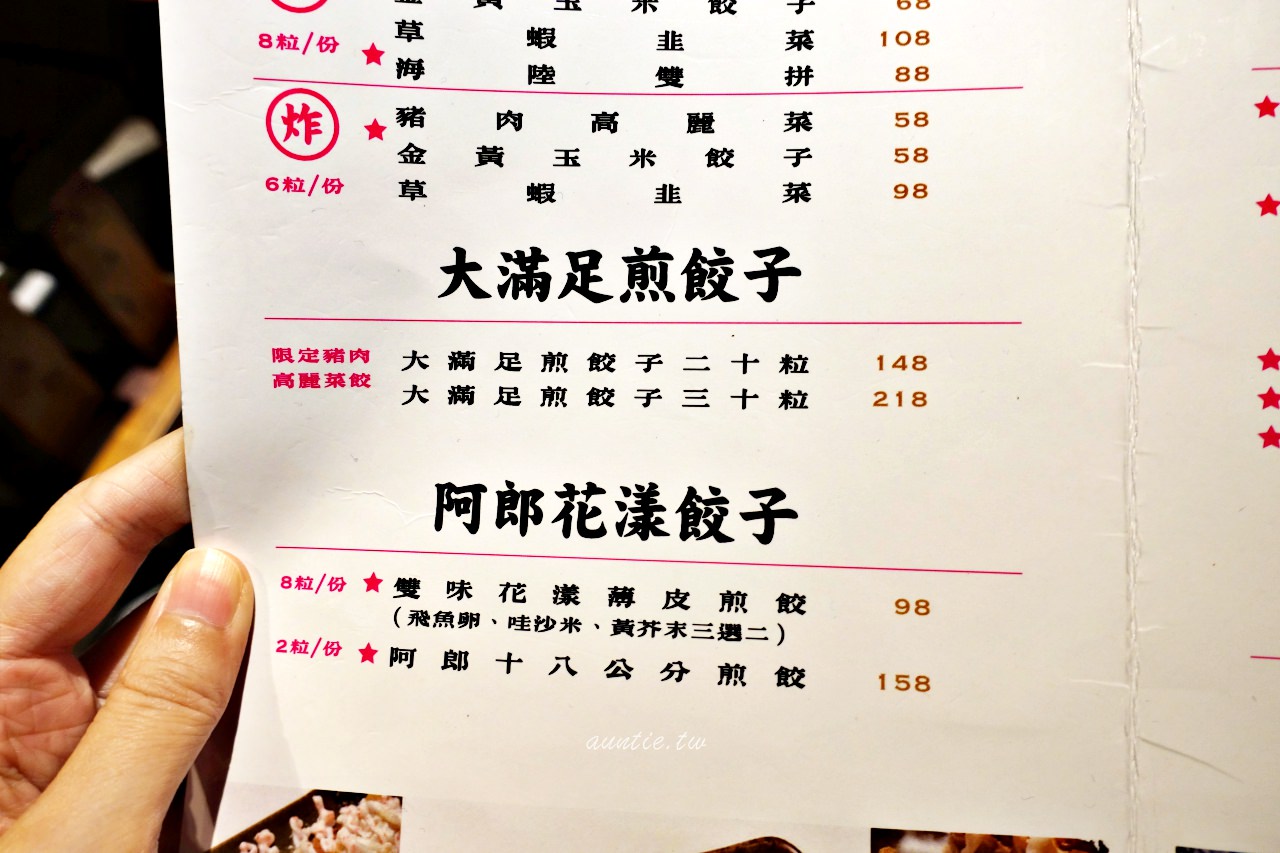 金黃玉米餃子 68
8粒/份 ★ 草蝦韭菜 108
海陸雙拼 88
炸 ★ 豬肉高麗菜 58
金黃玉米餃子 58
6粒/份 草蝦韭菜 98
大滿足煎餃子
限定豬肉 大滿足煎餃子二十粒 148
高麗菜餃 大滿足煎餃子三十粒 218
阿郎花漾餃子
8粒/份 ★ 雙味花漾薄皮煎餃 98
(飛魚卵、哇沙米、黃芥末三選二)
2粒/份 ★ 阿郎十八公分煎餃 158
auntie.tw